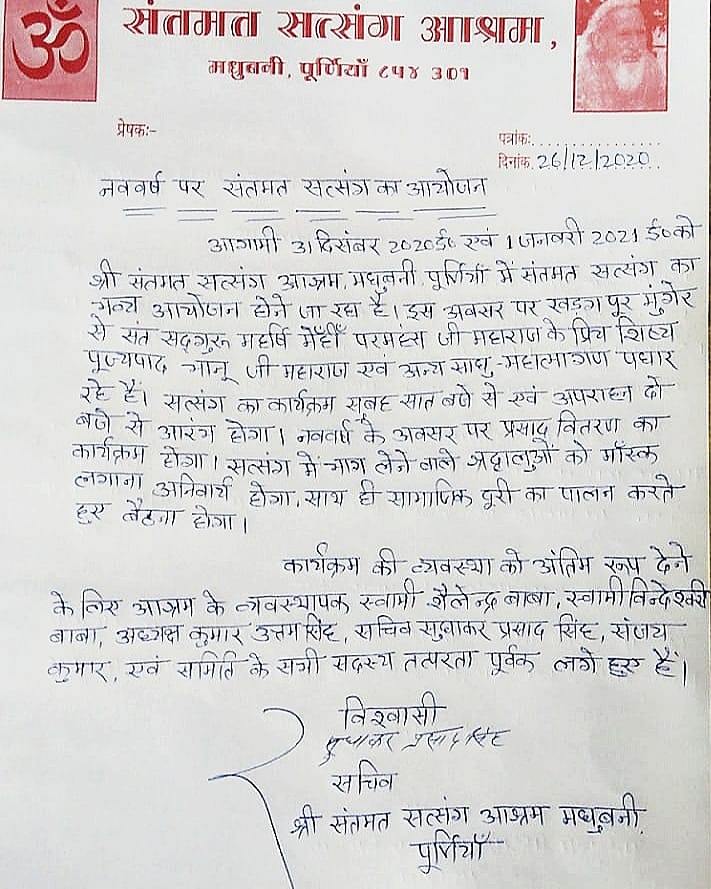 ॐ
संतमत सत्संग आश्रम,
मधुबनी, पूर्णियाँ ८५४ ३०१
प्रेषकः-
पत्रांकः
दिनांक 26/12/2020
नववर्ष पर संतमत सत्संग का आयोजन
आगामी 31 दिसंबर 2020 ई० एवं 1 जनवरी 2021 ई० को
श्री संतमत सत्संग आश्रम, मधुबनी, पूर्णियाँ में संतमत सत्संग का
भव्य आयोजन होने जा रहा है। इस अवसर पर खड़गपूर मुंगेर
से संत सद्गुरू महर्षि मेँहीँ परमहंस जी महाराज के प्रिय शिष्य
पूज्यपाद भानू जी महाराज एवं अन्य साधु-महात्मागण पधार
रहे हैं। सत्संग का कार्यक्रम सुबह सात बजे से एवं अपराहन दो
बजे से आरंभ होगा। नववर्ष के अवसर पर प्रसाद वितरण का
कार्यक्रम होगा। सत्संग में भाग लेने वाले श्रद्धालुओं को माँस्क
लगाना अनिवार्य होगा, साथ ही सामाजिक दूरी का पालन करते
हुए बैठना होगा।
कार्यक्रम की व्यवस्था को अंतिम रूप देने
के लिए आश्रम के व्यवस्थापक स्वामी शैलेन्द्र बाबा, स्वामी विन्देश्वरी
बाबा, अध्यक्ष कुमार उत्तम सिंह, सचिव सुधाकर प्रसाद सिंह, संजय
कुमार, एवं समिति के सभी सदस्य तत्परता पूर्वक लगे हुए हैं।
विश्वासी
सुधाकर प्रसाद सिंह
सचिव
श्री संतमत सत्संग आश्रम मधुबनी,
पूर्णियाँ